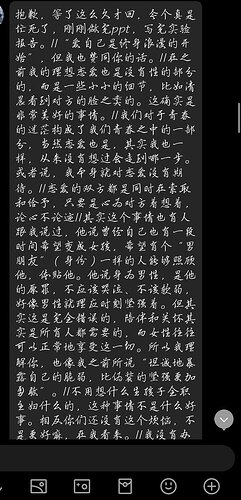 抱歉，等了这么久才回，今个真是
忙死了，刚刚做完ppt，写完实验
报告。//“爱自己是终身浪漫的开
始”，但我也赞同你的话。//在之
前我的理想恋爱也是没有性的部分
的，而是一些小小的细节，比如清
晨看到对方的脸之类的。这确实是
非常美好的事情。//我们对于青春
的迷茫构成了我们青春之中的一部
分，当然恋爱也是，其实我也一
样，从来没有想过会走到哪一步。
或者说，我本身就对恋爱没有期
待。//恋爱的双方都是同时在索取
和给予，只要是心为对方着想着，
论心不论迹//其实这个事情也有人
跟我说过，他说曾经自己也有一段
时间希望变成女孩，希望有个“男
朋友”（身份）一样的人能够照顾
他，体贴他。他说身为男性，是他
的原罪，不应该哭泣、不该软弱，
好像男性就理应时刻坚强着。但其
实这是完全错误的，陪伴和关怀其
实是所有人都需要的，而女性往往
可以正常地享受这一切。所以我理
解你，也像我之前所说“坦诚地暴
露自己的脆弱，比伪装的坚强要加
勇敢”。//不用想什么生孩子全职
主妇什么的，这种事情不是什么好
事。相反你们还没有这个烦恼，不
是更好嘛，在我看来。//我没有办